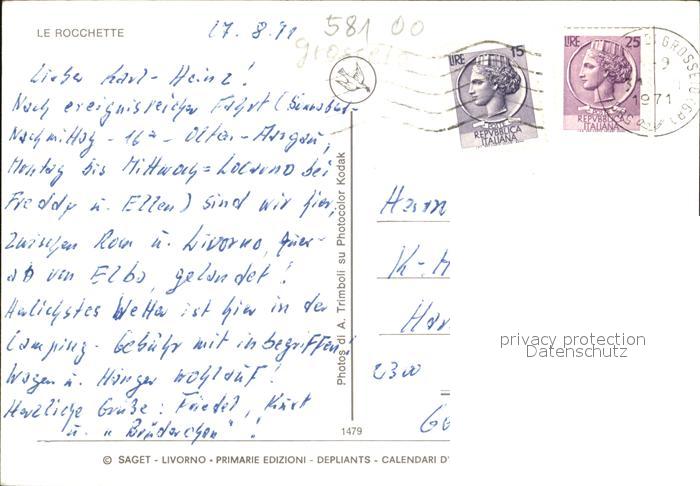 LE ROCCHETTE
17. 8. 71
581 00
grosseto
LIRE 15
POSTE
REPVBBLICA
ITALIANA
LIRE 25
REPVBBLICA
ITALIANA
GROSSETO
1971
Lieber Karl-Heinz!
Nach ereignisreicher Fahrt (Sonnabend-
Nachmittag - 16ᵒᵒ - Olten-Aargau,
Montag bis Mittwoch = Locarno bei
Freddy u. Ellen) sind wir hier,
zwischen Rom u. Livorno, quer-
ab von Elba, gelandet!
Herrlichstes Wetter ist hier in der
Camping-Gebühr mit inbegriffen!
Wagen u. Hänger wohlauf!
Herzliche Grüße: Friedel, Kurt
u. "Brüderchen"!
Herrn
K-H
Har
2300
Photos di A. Trimboli su Photocolor Kodak
privacy protection
Datenschutz
1479
© SAGET - LIVORNO • PRIMARIE EDIZIONI - DEPLIANTS - CALENDARI D'